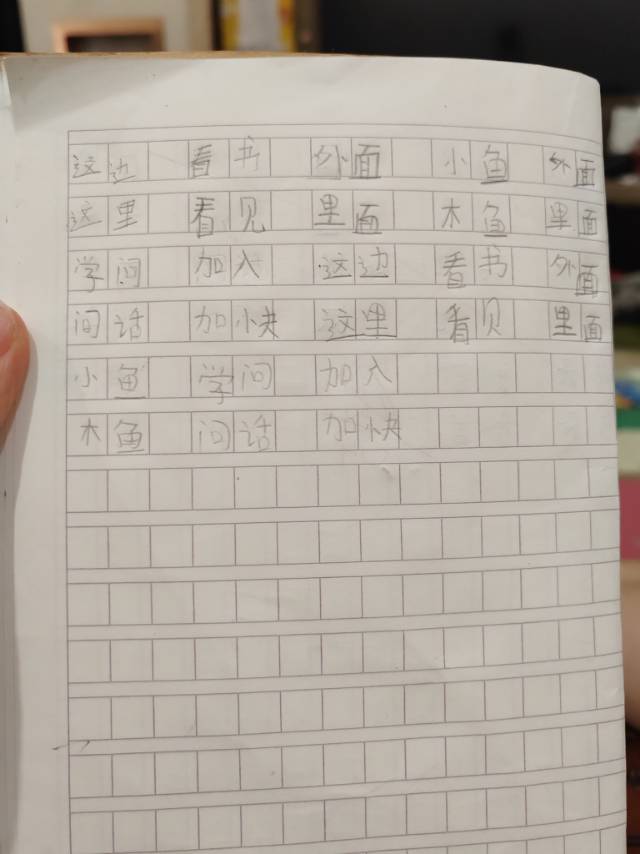 这边 看书 外面 小鱼 外面
这里 看见 里面 木鱼 里面
学问 加入 这边 看书 外面
问话 加快 这里 看见 里面
小鱼 学问 加入
木鱼 问话 加快